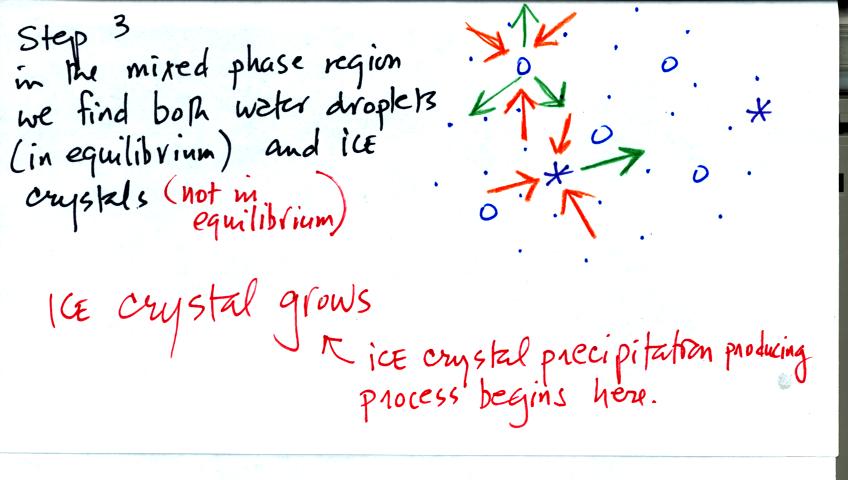 Step 3
in the mixed phase region
we find both water droplets
(in equilibrium) and ice
crystals (not in
equilibrium)
ICE crystal grows
ice crystal precipitation producing
process begins here.